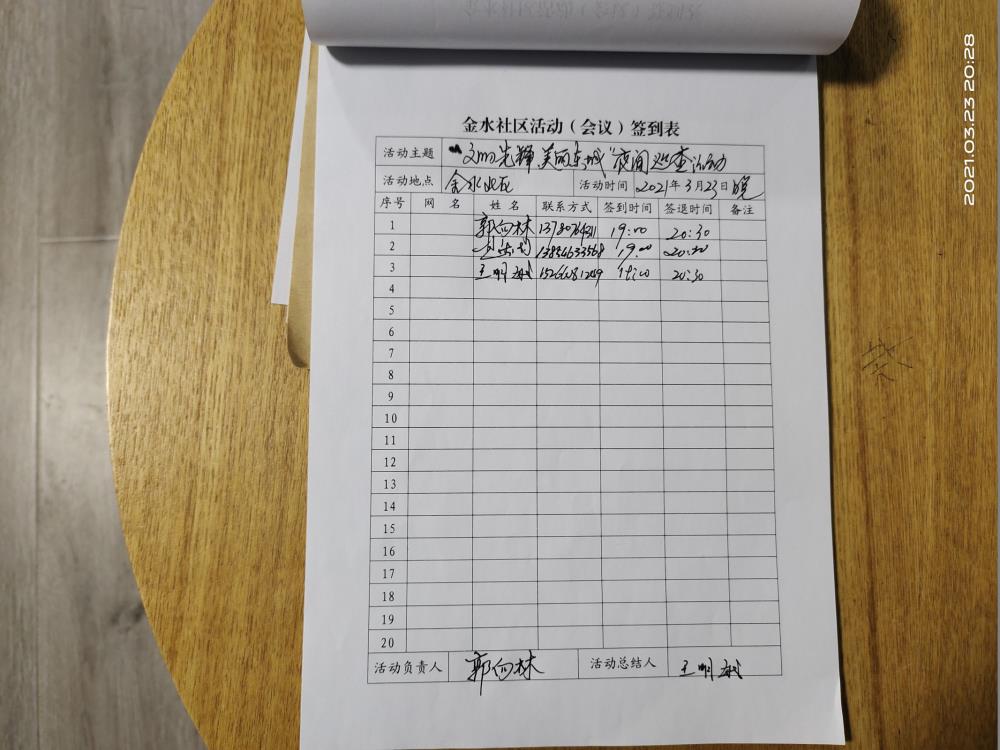 金水社区活动（会议）签到表
活动主题 文明先锋 美丽东城"夜间巡查活动
活动地点 金水社区 活动时间 2021年3月23日晚
序号 网 名 姓 名 联系方式 签到时间 签退时间 备注
1 郭向林 19:00 20:30
2 19:00
3 王明 20:30
4
5
6
7
8
9
10
11
12
13
14
15
16
17
18
19
20
活动负责人 郭向林 活动总结人 王明
2021.03.23 20:28